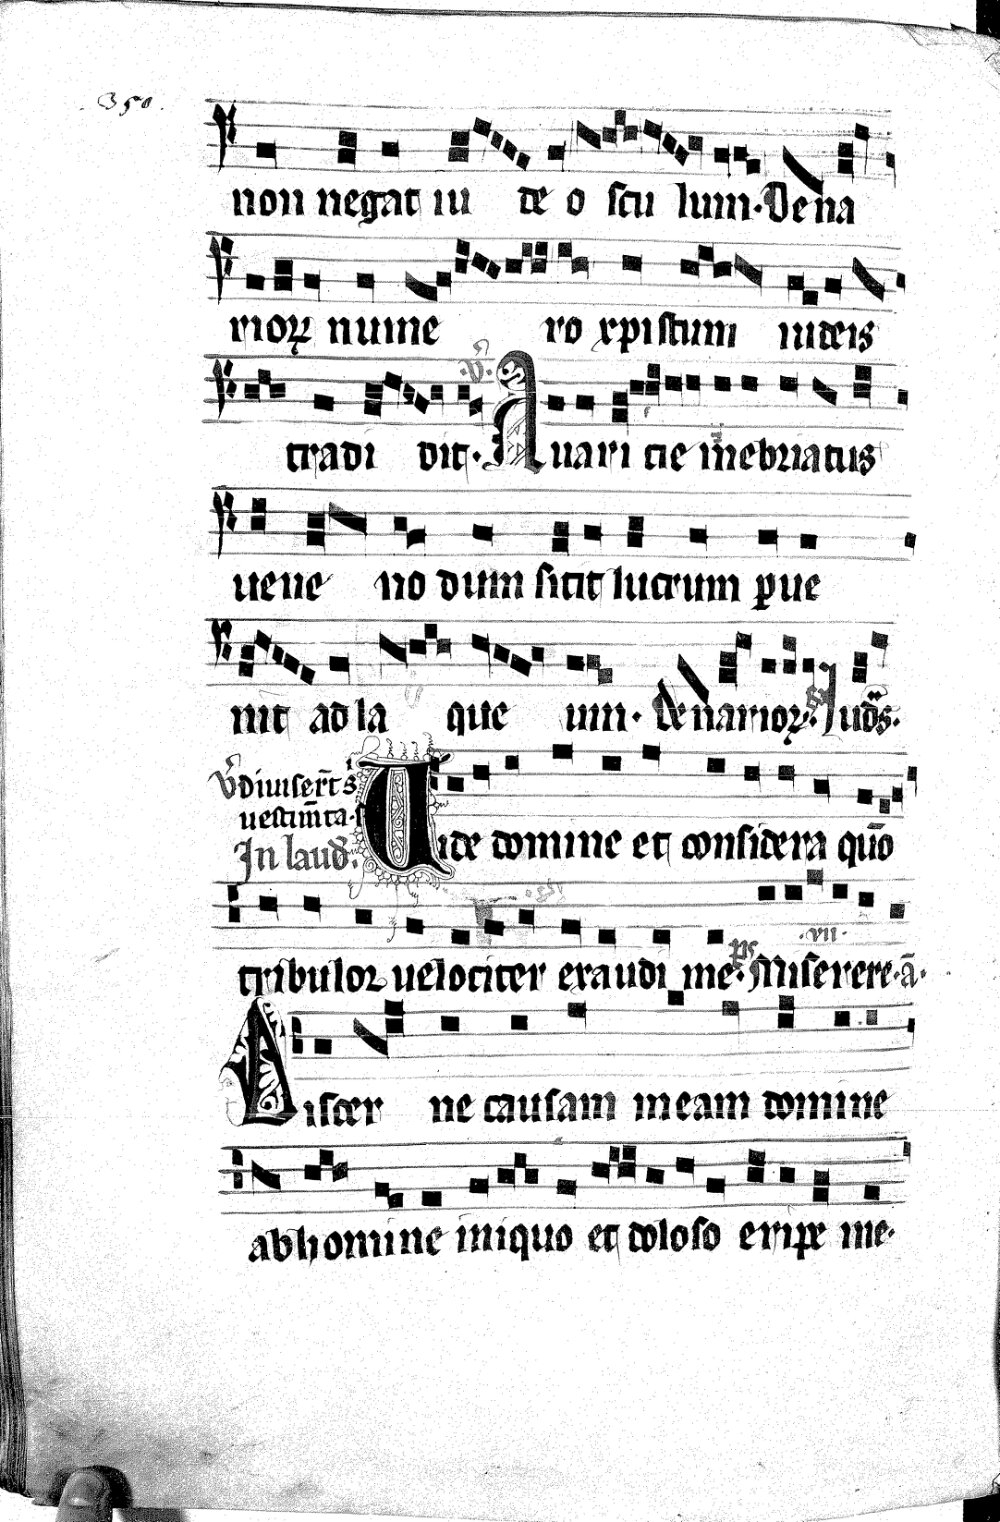 350.
non negat iu de o scu lum. Dena
rioꝝ nume ro xpistum iudeis
tradi dit. ℣. Auari cie inebriatus
uene no dum sitit lucrum ꝓue
nit ad la que um. denarioꝝ. Iud̃s.
℣ diuiser̃t s̾i
uestim̃ta.
In laud̾. Uide domine et considera quō
tribulor uelociter exaudi me. p̃s Miserere. ã. .vii.
Discer ne causam meam domine
ab homine iniquo et doloso eripe me.